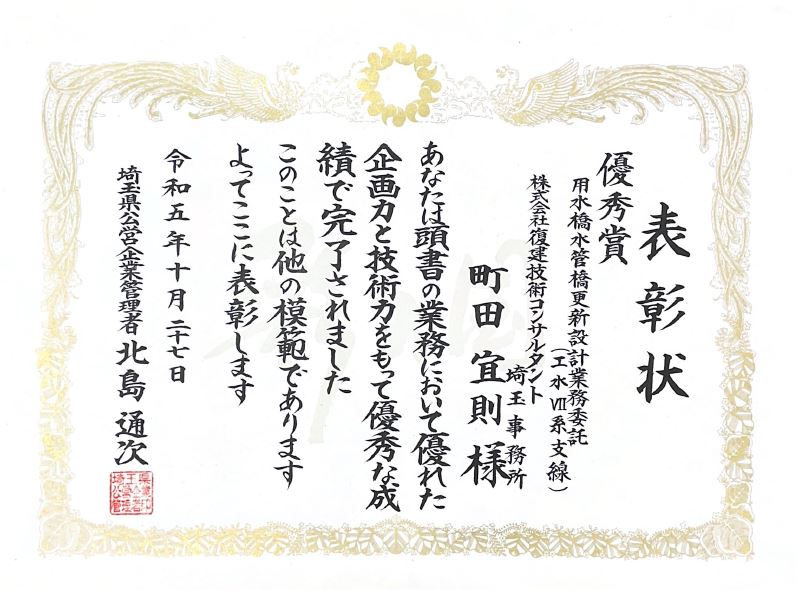 表彰状
優秀賞
用水橋水管橋更新設計業務委託
(工水Ⅶ系支線)
株式会社復建技術コンサルタント
埼玉事務所
町田宜則様
あなたは頭書の業務において優れた
企画力と技術力をもって優秀な成
績で完了されました
このことは他の模範であります
よってここに表彰します
令和五年十月二十七日
埼玉県公営企業管理者 北島通次